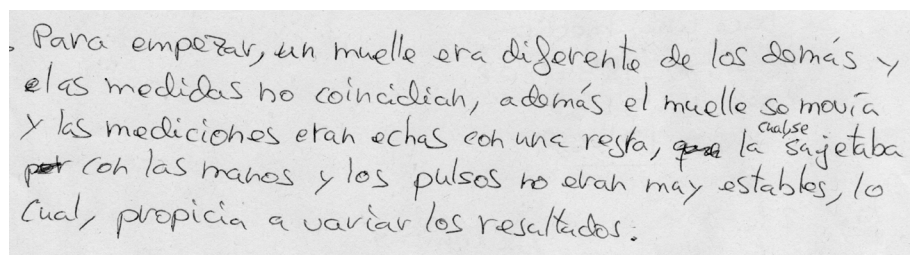 . Para empezar, un muelle era diferente de los demás y
elas medidas no coincidian, además el muelle se movía
y las mediciones eran echas con una regla, la cual se sujetaba
con las manos y los pulsos no eran muy estables, lo
cual, propicia a variar los resultados.